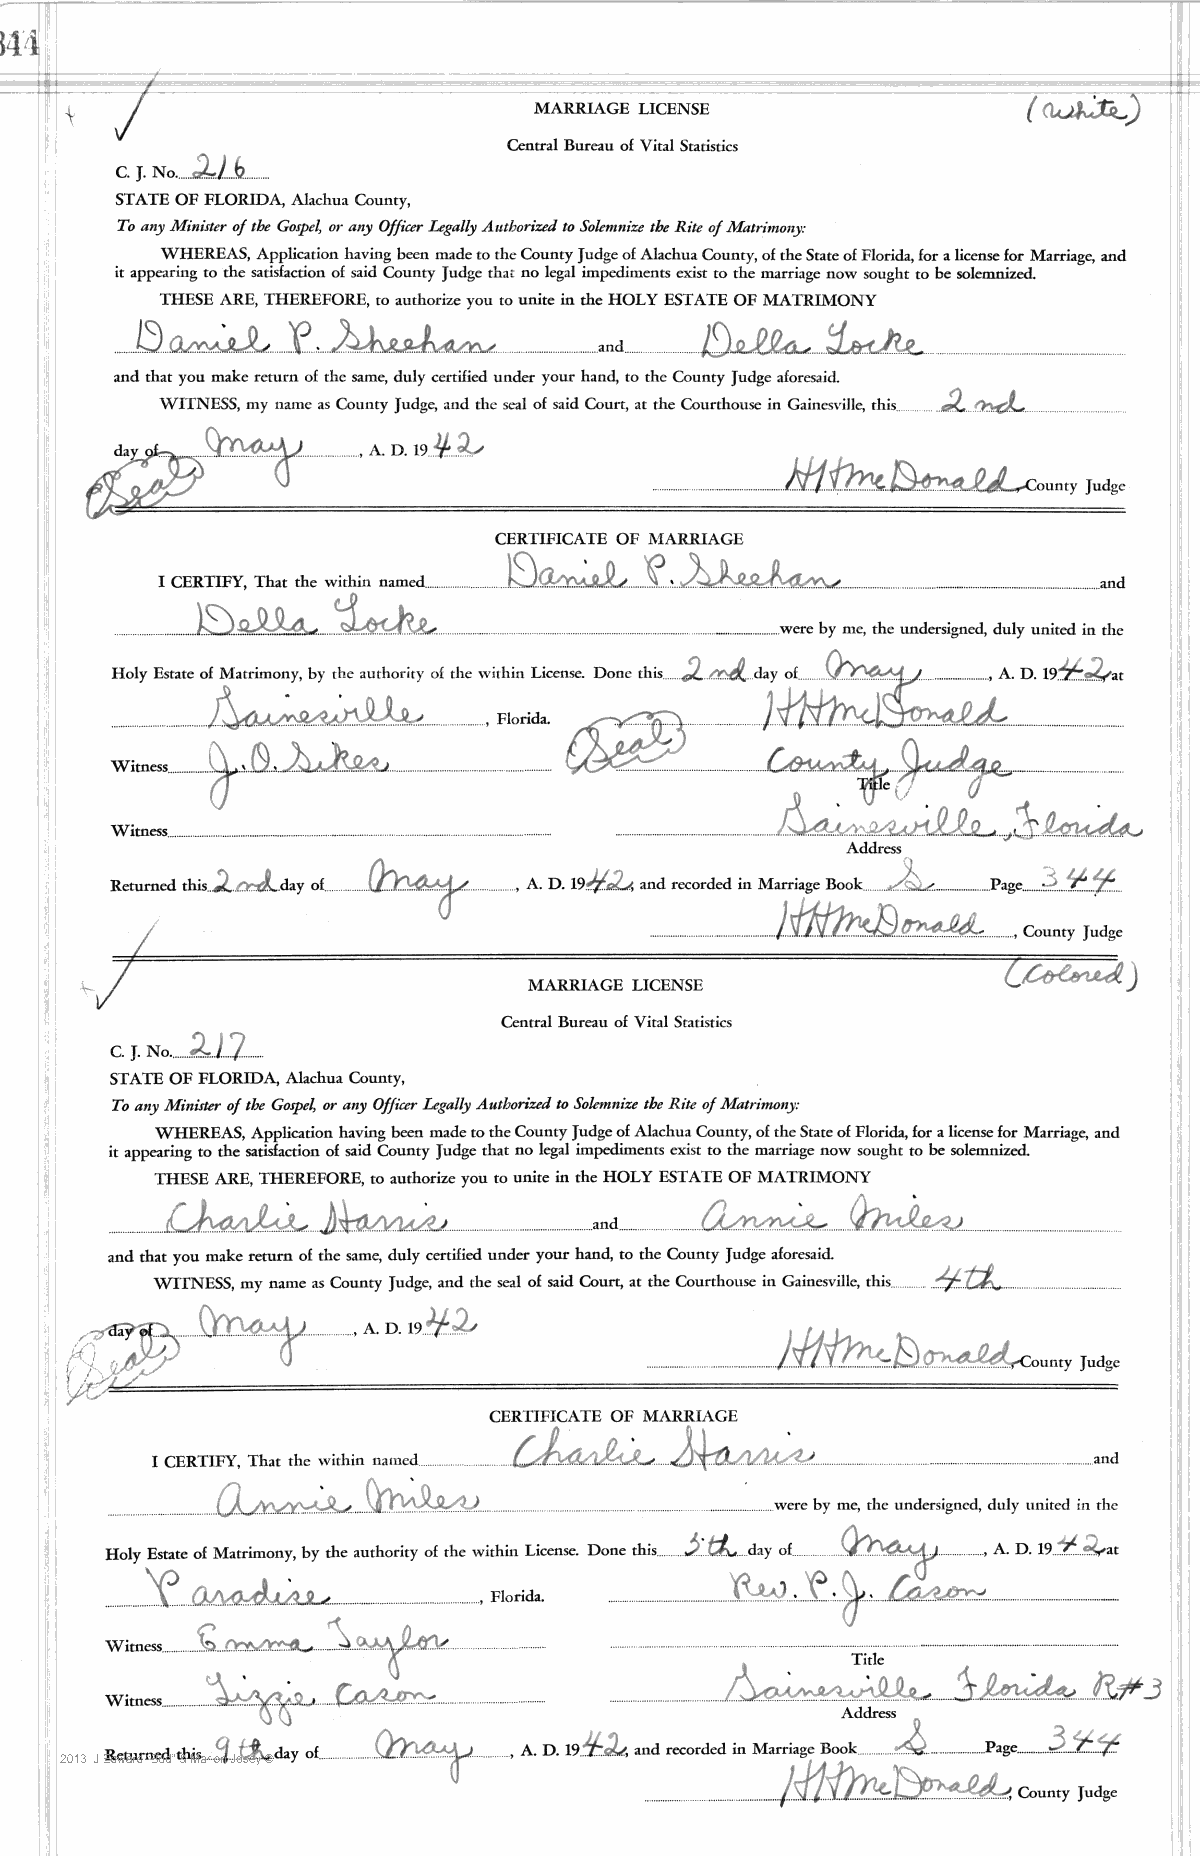 344
MARRIAGE LICENSE (White)
Central Bureau of Vital Statistics
C. J. No. 216
STATE OF FLORIDA, Alachua County,
To any Minister of the Gospel, or any Officer Legally Authorized to Solemnize the Rite of Matrimony:
WHEREAS, Application having been made to the County Judge of Alachua County, of the State of Florida, for a license for Marriage, and
it appearing to the satisfaction of said County Judge that no legal impediments exist to the marriage now sought to be solemnized.
THESE ARE, THEREFORE, to authorize you to unite in the HOLY ESTATE OF MATRIMONY
Daniel P. Sheehan and Della Locke
and that you make return of the same, duly certified under your hand, to the County Judge aforesaid.
WITNESS, my name as County Judge, and the seal of said Court, at the Courthouse in Gainesville, this 2nd
day of May, A. D. 1942
(Seal) HHMcDonald, County Judge
CERTIFICATE OF MARRIAGE
I CERTIFY, That the within named Daniel P. Sheehan and
Della Locke were by me, the undersigned, duly united in the
Holy Estate of Matrimony, by the authority of the within License. Done this 2nd day of May, A. D. 1942, at
Gainesville, Florida. HHMcDonald
Witness J. O. Sikes (Seal) County Judge
Title
Witness Gainesville, Florida
Address
Returned this 2nd day of May, A. D. 1942, and recorded in Marriage Book S Page 344
HHMcDonald, County Judge
(Colored)
MARRIAGE LICENSE
Central Bureau of Vital Statistics
C. J. No. 217
STATE OF FLORIDA, Alachua County,
To any Minister of the Gospel, or any Officer Legally Authorized to Solemnize the Rite of Matrimony:
WHEREAS, Application having been made to the County Judge of Alachua County, of the State of Florida, for a license for Marriage, and
it appearing to the satisfaction of said County Judge that no legal impediments exist to the marriage now sought to be solemnized.
THESE ARE, THEREFORE, to authorize you to unite in the HOLY ESTATE OF MATRIMONY
Charlie Harris and Annie Miles
and that you make return of the same, duly certified under your hand, to the County Judge aforesaid.
WITNESS, my name as County Judge, and the seal of said Court, at the Courthouse in Gainesville, this 4th
day of May, A. D. 1942
(Seal) HHMcDonald, County Judge
CERTIFICATE OF MARRIAGE
I CERTIFY, That the within named Charlie Harris and
Annie Miles were by me, the undersigned, duly united in the
Holy Estate of Matrimony, by the authority of the within License. Done this 5th day of May, A. D. 1942, at
Paradise, Florida. Rev. P. J. Cason
Witness Emma Taylor
Title
Witness Lizzie Cason Gainesville Florida R#3
Address
Returned this 9th day of May, A. D. 1942, and recorded in Marriage Book S Page 344
2013 J
HHMcDonald, County Judge